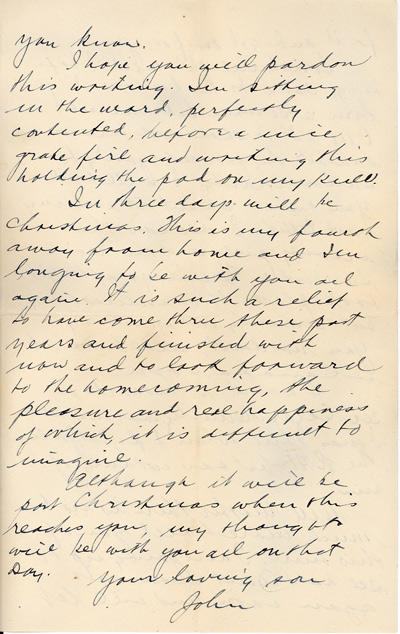 you know.
I hope you will pardon
this writing. I'm sitting
in the ward, perfectly
contented, before a nice
grate fire and writing this
holding the pad on my knee.
In three days will be
Christmas. This is my fourth
away from home and I'm
longing to be with you all
again. It is such a relief
to have come thru these past
years and finished with
now and to look forward
to the homecoming, the
pleasure and real happiness
of which, it is difficult to
imagine.
Although it will be
past Christmas when this
reaches you, my thoughts
will be with you all on that
day.
Your loving son
John